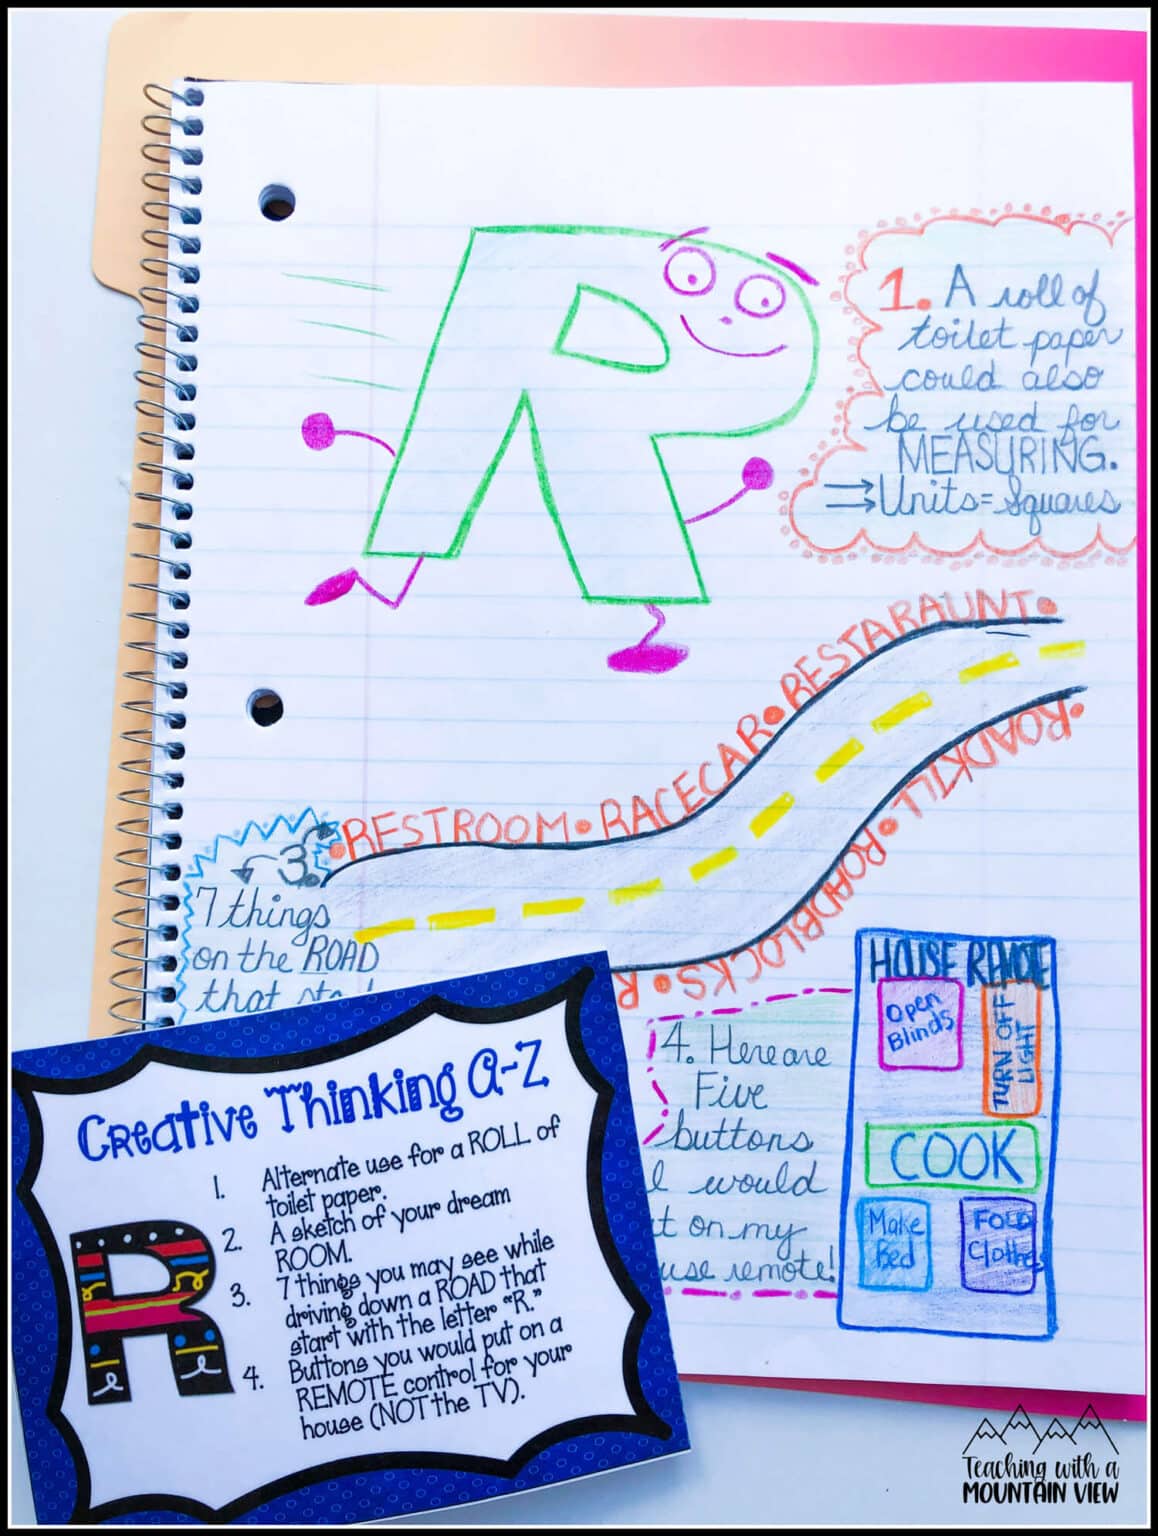 1. A roll of
toilet paper
could also
be used for
MEASURING.
→Units=Squares
RESTROOM • RACECAR • RESTARAUNT •
• ROADKILL • ROADBLOCKS • R
3.
7 things
on the ROAD
that
4. Here are
Five
buttons
I would
on my
remote!
HOUSE REMOTE
Open
Blinds
TURN OFF
LIGHT
COOK
Make
Bed
FOLD
Clothes
Creative Thinking A-Z
1. Alternate use for a ROLL of
toilet paper.
2. A sketch of your dream
ROOM.
3. 7 things you may see while
driving down a ROAD that
start with the letter "R."
4. Buttons you would put on a
REMOTE control for your
house (NOT the TV).
R
Teaching with a
MOUNTAIN VIEW